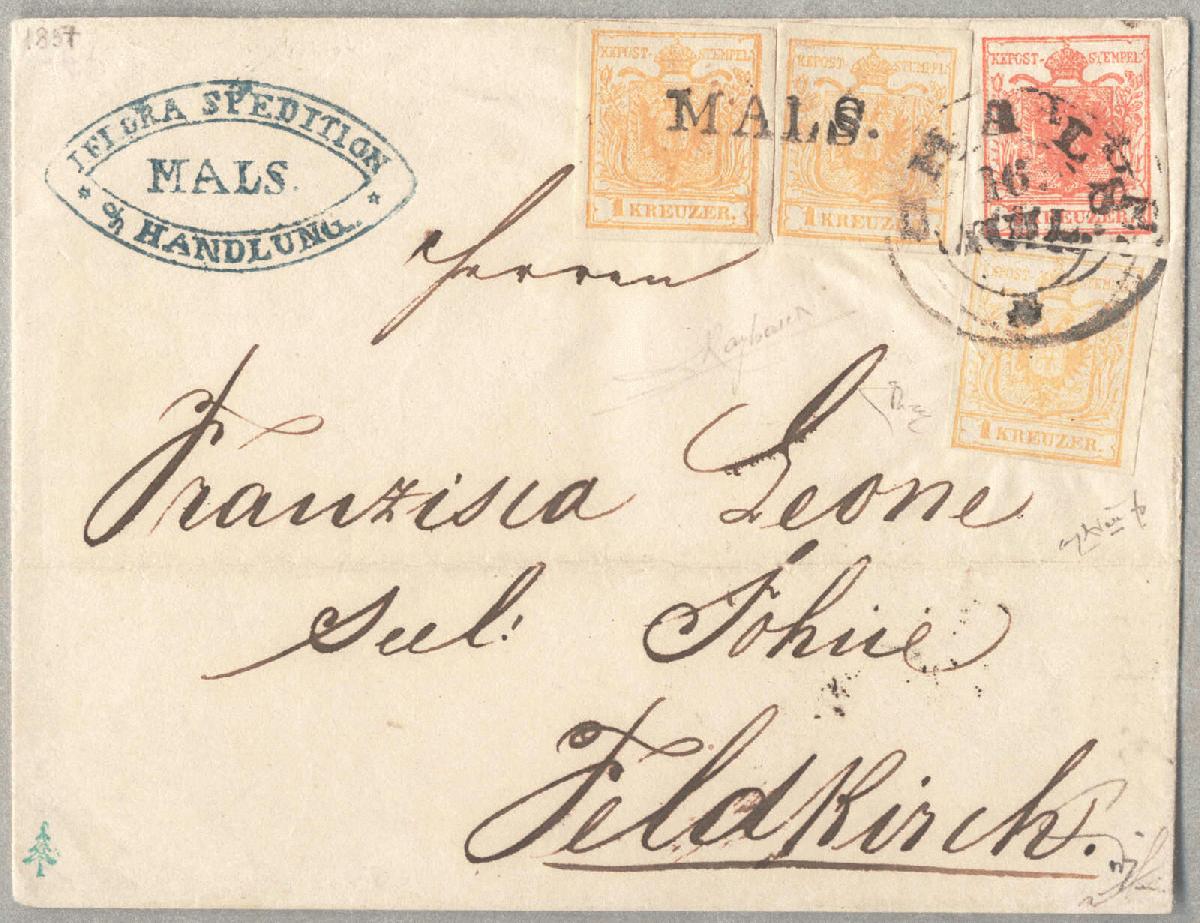 1857
IFLORA SPEDITION
MALS.
& HANDLUNG.
KKPOST-STEMPEL
1 KREUZER.
KKPOST-STEMPEL
1 KREUZER.
KKPOST-STEMPEL
KREUZER.
MALS.
MALS
16.
JUL.
KKPOST-STEMPEL
1 KREUZER.
Herren
Franzisca Leone
seel: Söhne
Feldkirch.